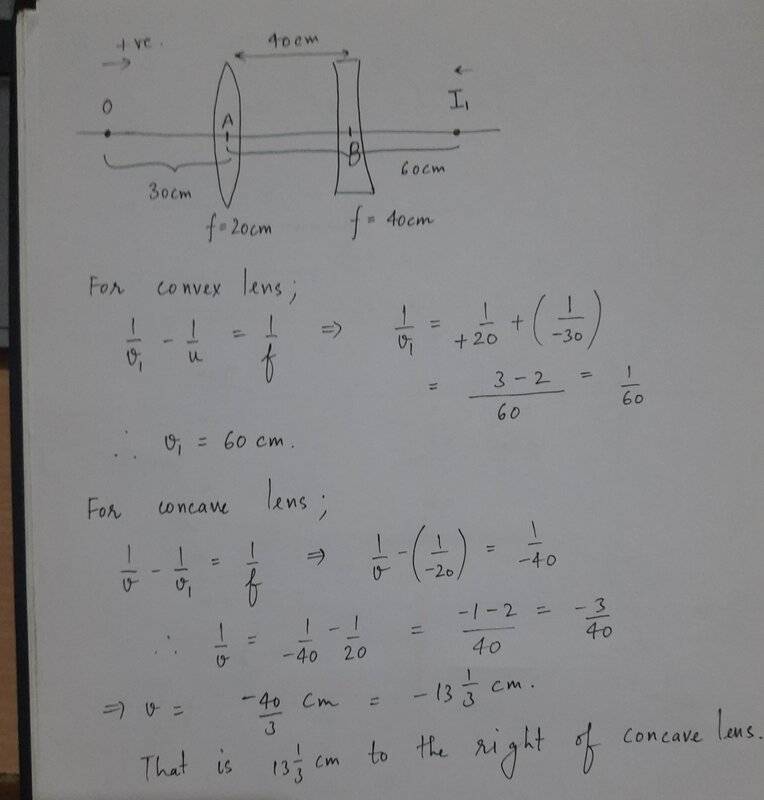 +ve.
40cm
O
A
B
I₁
30cm
60cm
f=20cm
f= 40cm
For convex lens;
1/v₁ - 1/u = 1/f ⇒ 1/v₁ = 1/+20 + (1/-30)
= 3-2/60 = 1/60
∴ v₁ = 60 cm.
For concave lens;
1/v - 1/v₁ = 1/f ⇒ 1/v - (1/-20) = 1/-40
∴ 1/v = 1/-40 - 1/20 = -1-2/40 = -3/40
⇒ v = -40/3 cm = -13 1/3 cm.
That is 13 1/3 cm to the right of concave lens.